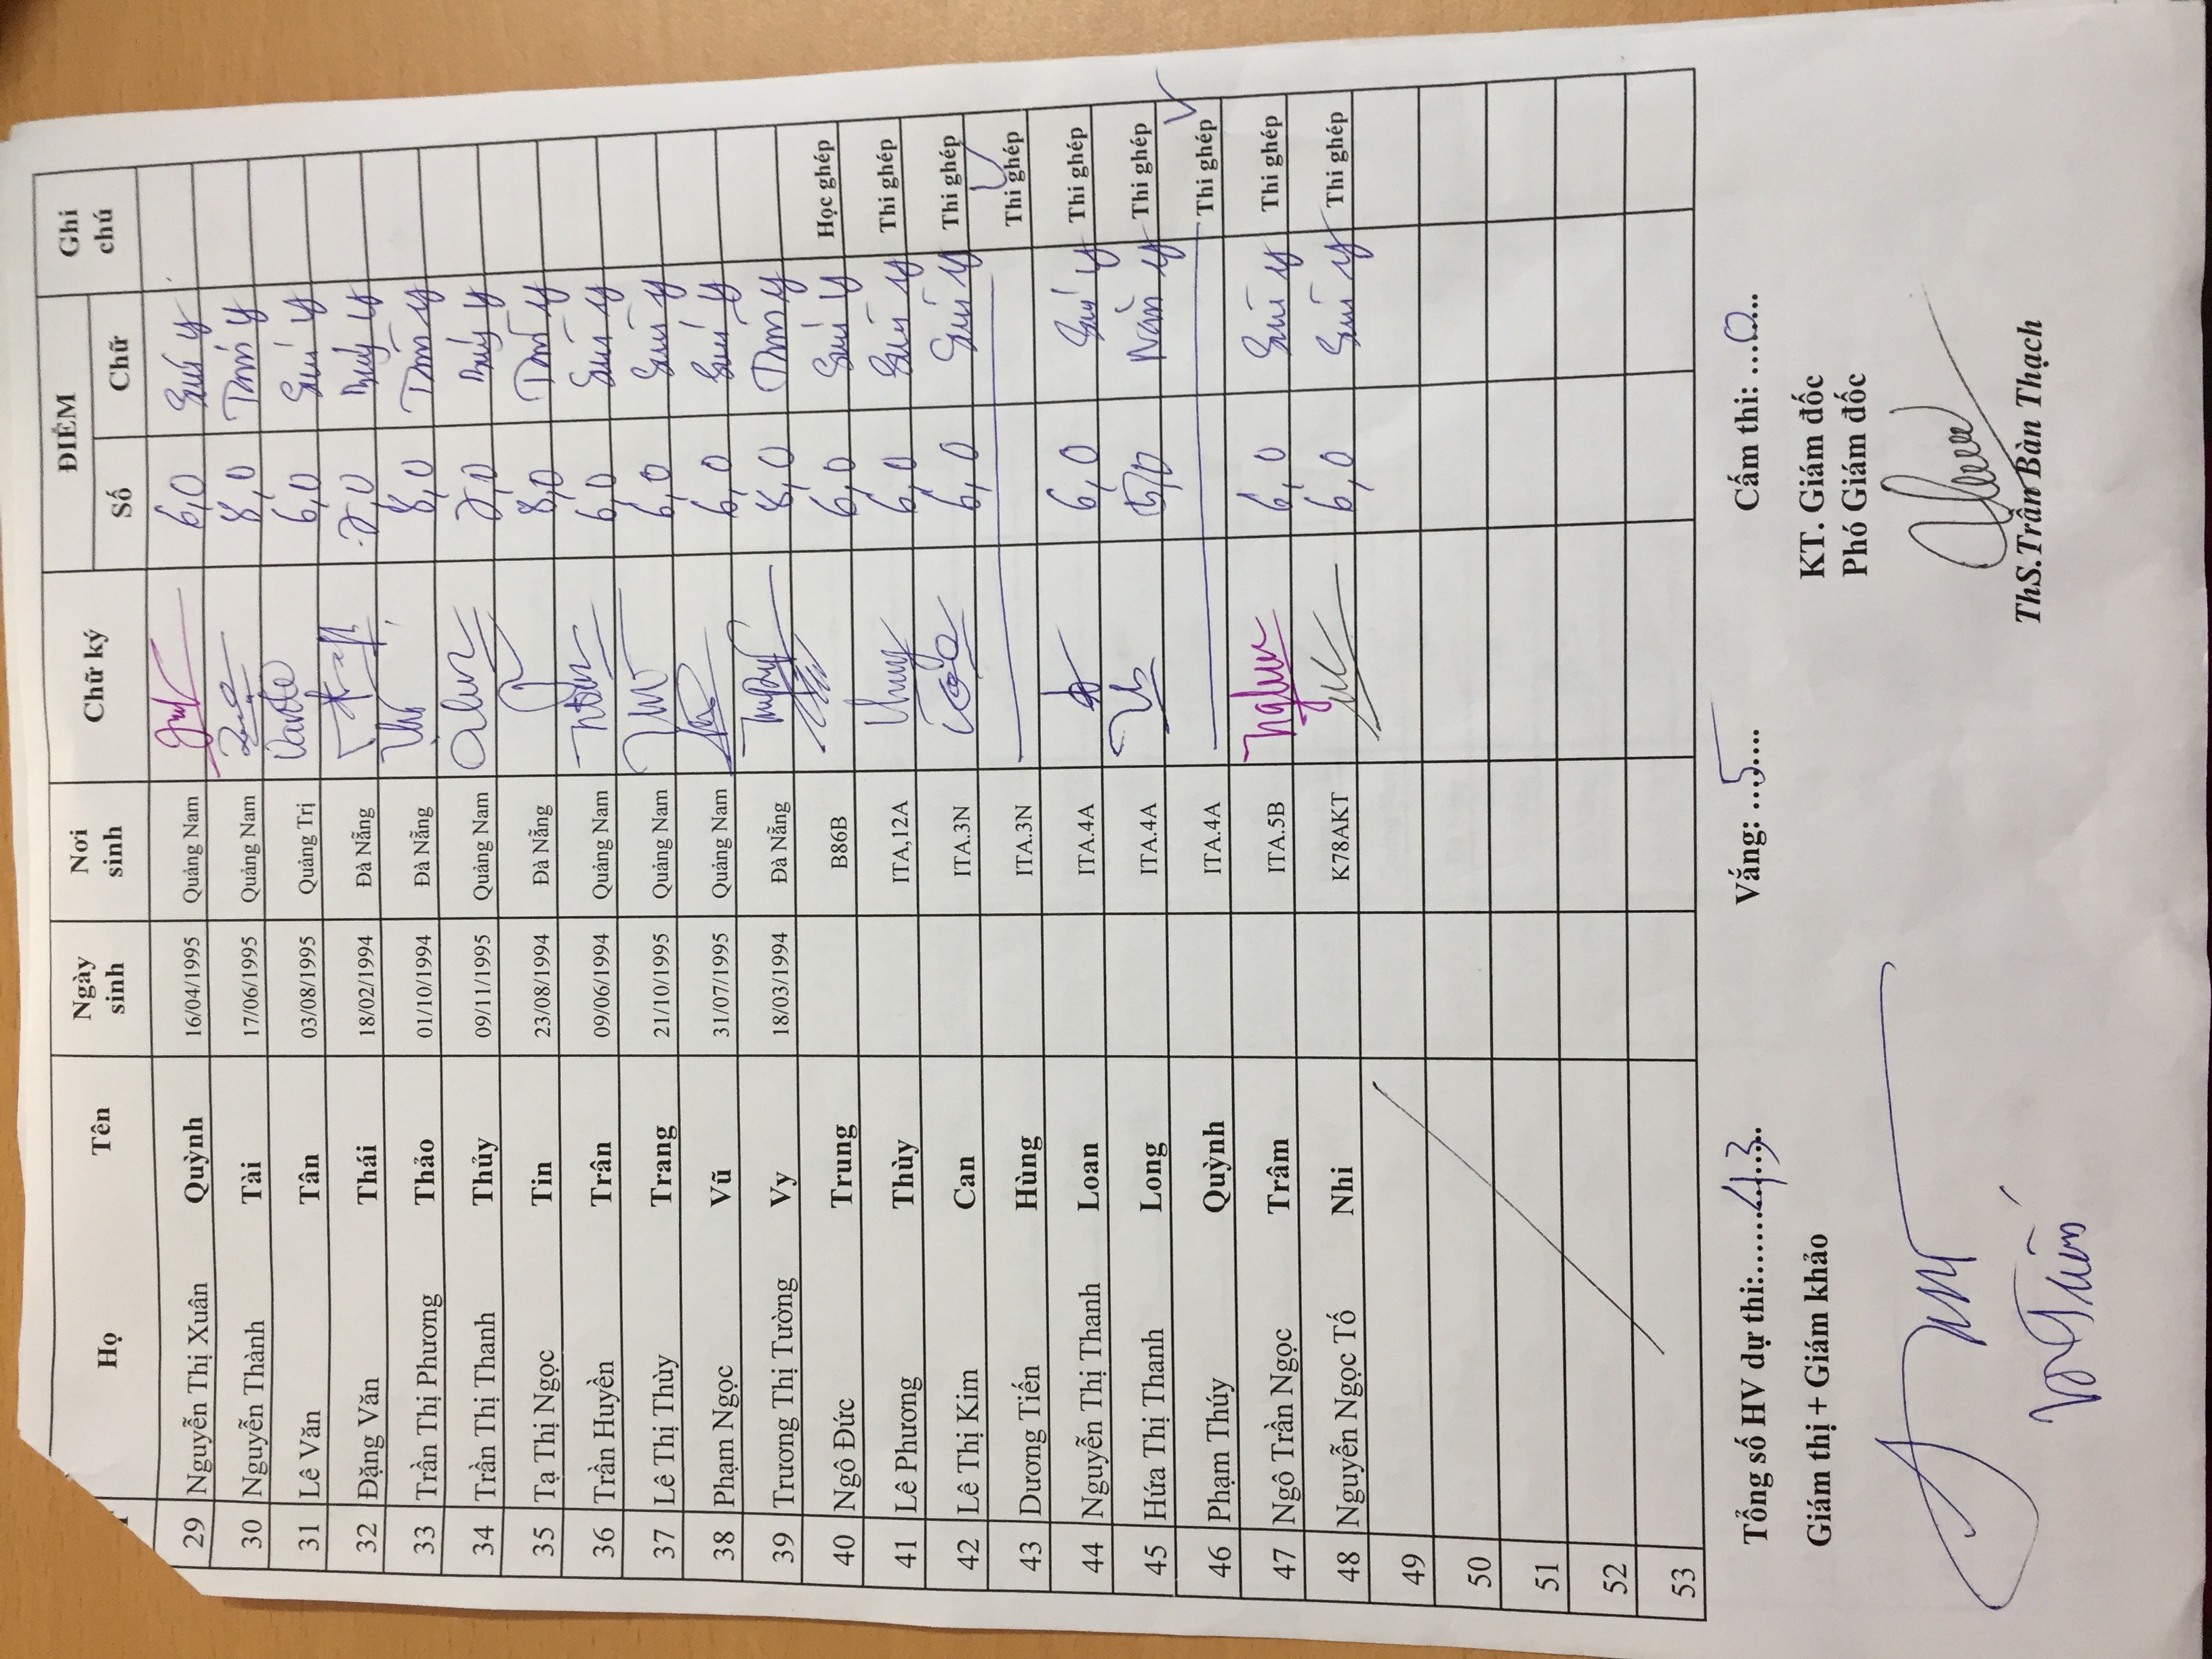 Họ Tên Ngày sinh Nơi sinh Chữ ký ĐIỂM Ghi chú
Số Chữ
29 Nguyễn Thị Xuân Quỳnh 16/04/1995 Quảng Nam 6,0 Sáu y
30 Nguyễn Thành Tài 17/06/1995 Quảng Nam 8,0 Tám y
31 Lê Văn Tân 03/08/1995 Quảng Trị 6,0 Sáu y
32 Đặng Văn Thái 18/02/1994 Đà Nẵng 7,0 Bảy y
33 Trần Thị Phương Thảo 01/10/1994 Đà Nẵng 8,0 Tám y
34 Trần Thị Thanh Thủy 09/11/1995 Quảng Nam 7,0 Bảy y
35 Tạ Thị Ngọc Tin 23/08/1994 Đà Nẵng 8,0 Tám y
36 Trần Huyền Trân 09/06/1994 Quảng Nam 6,0 Sáu y
37 Lê Thị Thùy Trang 21/10/1995 Quảng Nam 6,0 Sáu y
38 Phạm Ngọc Vũ 31/07/1995 Quảng Nam 6,0 Sáu y
39 Trương Thị Tường Vy 18/03/1994 Đà Nẵng 8,0 Tám y
40 Ngô Đức Trung B86B 6,0 Sáu y Học ghép
41 Lê Phương Thùy ITA,12A 6,0 Sáu y Thi ghép
42 Lê Thị Kim Can ITA.3N 6,0 Sáu y Thi ghép
43 Dương Tiến Hùng ITA.3N Thi ghép
44 Nguyễn Thị Thanh Loan ITA.4A 6,0 Sáu y Thi ghép
45 Hứa Thị Thanh Long ITA.4A 5,0 Năm y Thi ghép
46 Phạm Thúy Quỳnh ITA.4A Thi ghép
47 Ngô Trần Ngọc Trâm ITA.5B 6,0 Sáu y Thi ghép
48 Nguyễn Ngọc Tố Nhi K78AKT 6,0 Sáu y Thi ghép
49
50
51
52
53
Tổng số HV dự thi:......43.... Vắng: ...5..... Cấm thi: ...0....
Giám thị + Giám khảo KT. Giám đốc
Phó Giám đốc
ThS.Trần Bàn Thạch